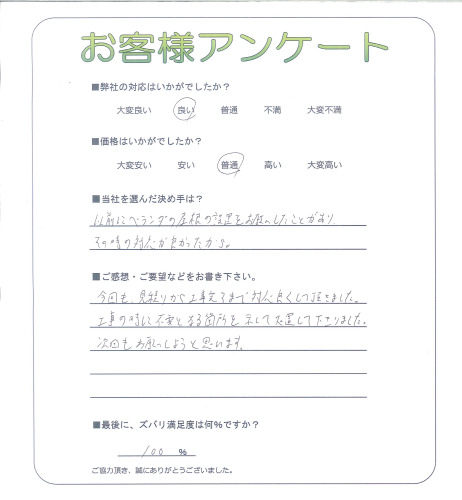 お客様アンケート
■弊社の対応はいかがでしたか？
大変良い 良い 普通 不満 大変不満
■価格はいかがでしたか？
大変安い 安い 普通 高い 大変高い
■当社を選んだ決め手は？
以前にベランダの屋根の設置をお願いしたことがあり
その時の対応が良かったから。
■ご感想・ご要望などをお書き下さい。
今回も、見積りから工事完了まで対応良くして頂きました。
工事の時に不要となる箇所を示して処置して下さりました。
次回もお願いしようと思います。
■最後に、ズバリ満足度は何%ですか？
100 %
ご協力頂き、誠にありがとうございました。